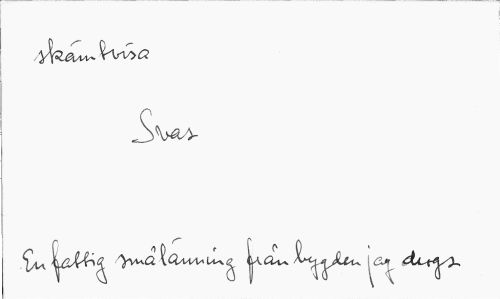 skämtvisa
Svas
En fattig smålänning från bygden jag drogs